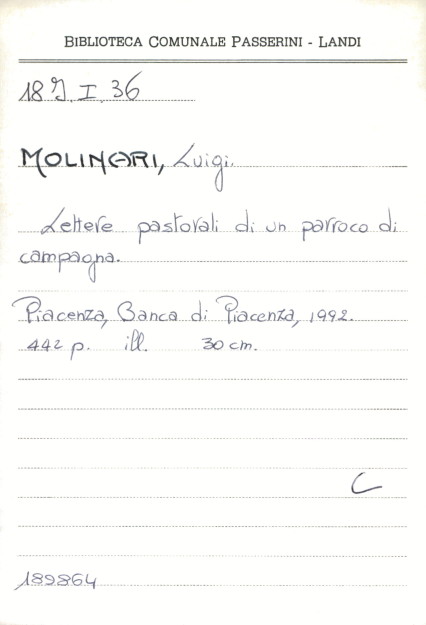 BIBLIOTECA COMUNALE PASSERINI - LANDI
18 J. I. 36
MOLINARI, Luigi.
Lettere pastorali di un parroco di
campagna.
Piacenza, Banca di Piacenza, 1992.
442 p. ill. 30 cm.
C
189864